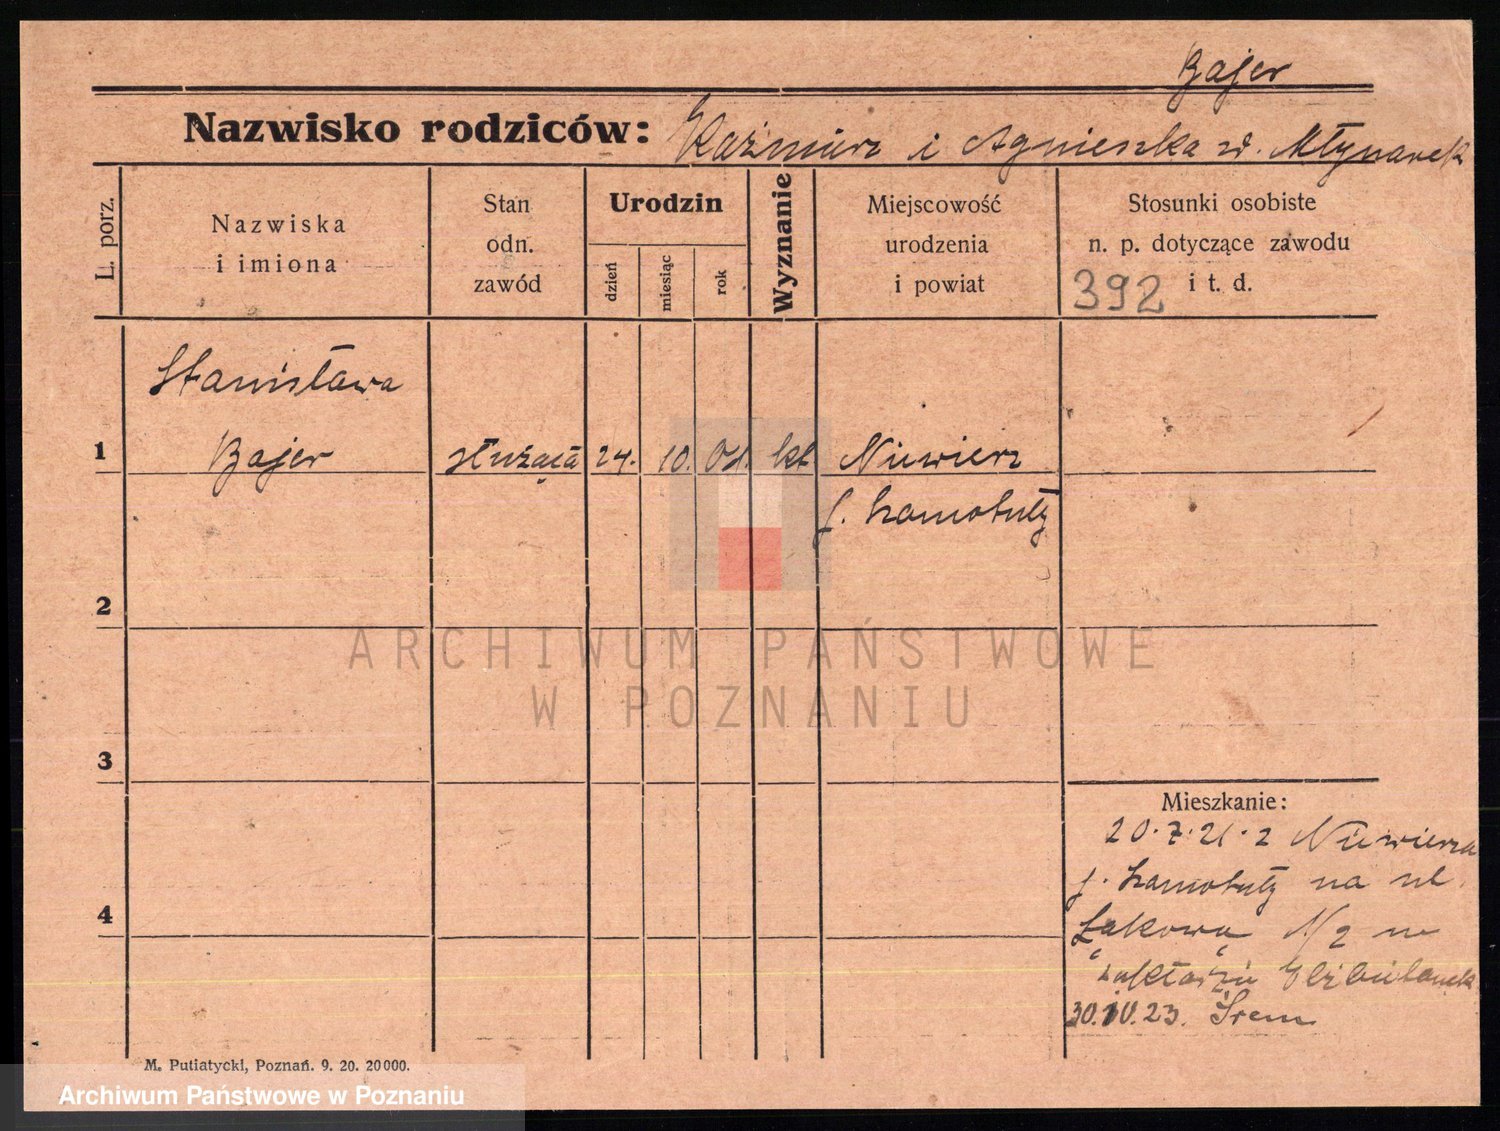 Bajer
Nazwisko rodziców: Kaźmierz i Agnieszka z d. Młynarek
L. porz.
Nazwiska
i imiona
Stan
odn.
zawód
Urodzin
dzień
miesiąc
rok
Wyznanie
Miejscowość
urodzenia
i powiat
Stosunki osobiste
n. p. dotyczące zawodu
i t. d.
392
Stanisława
1 Bajer służąca 24. 10. 01. kt Niewierz
p. Szamotuły
2
3
4
Mieszkanie:
20.7.21. z Niewierza
p. Szamotuły na ul.
Łąkową N 2 w
zakładzie Elżbietanek
30.IV.23. Śrem
M. Putiatycki, Poznań. 9. 20. 20000.
ARCHIWUM PAŃSTWOWE
W POZNANIU
Archiwum Państwowe w Poznaniu